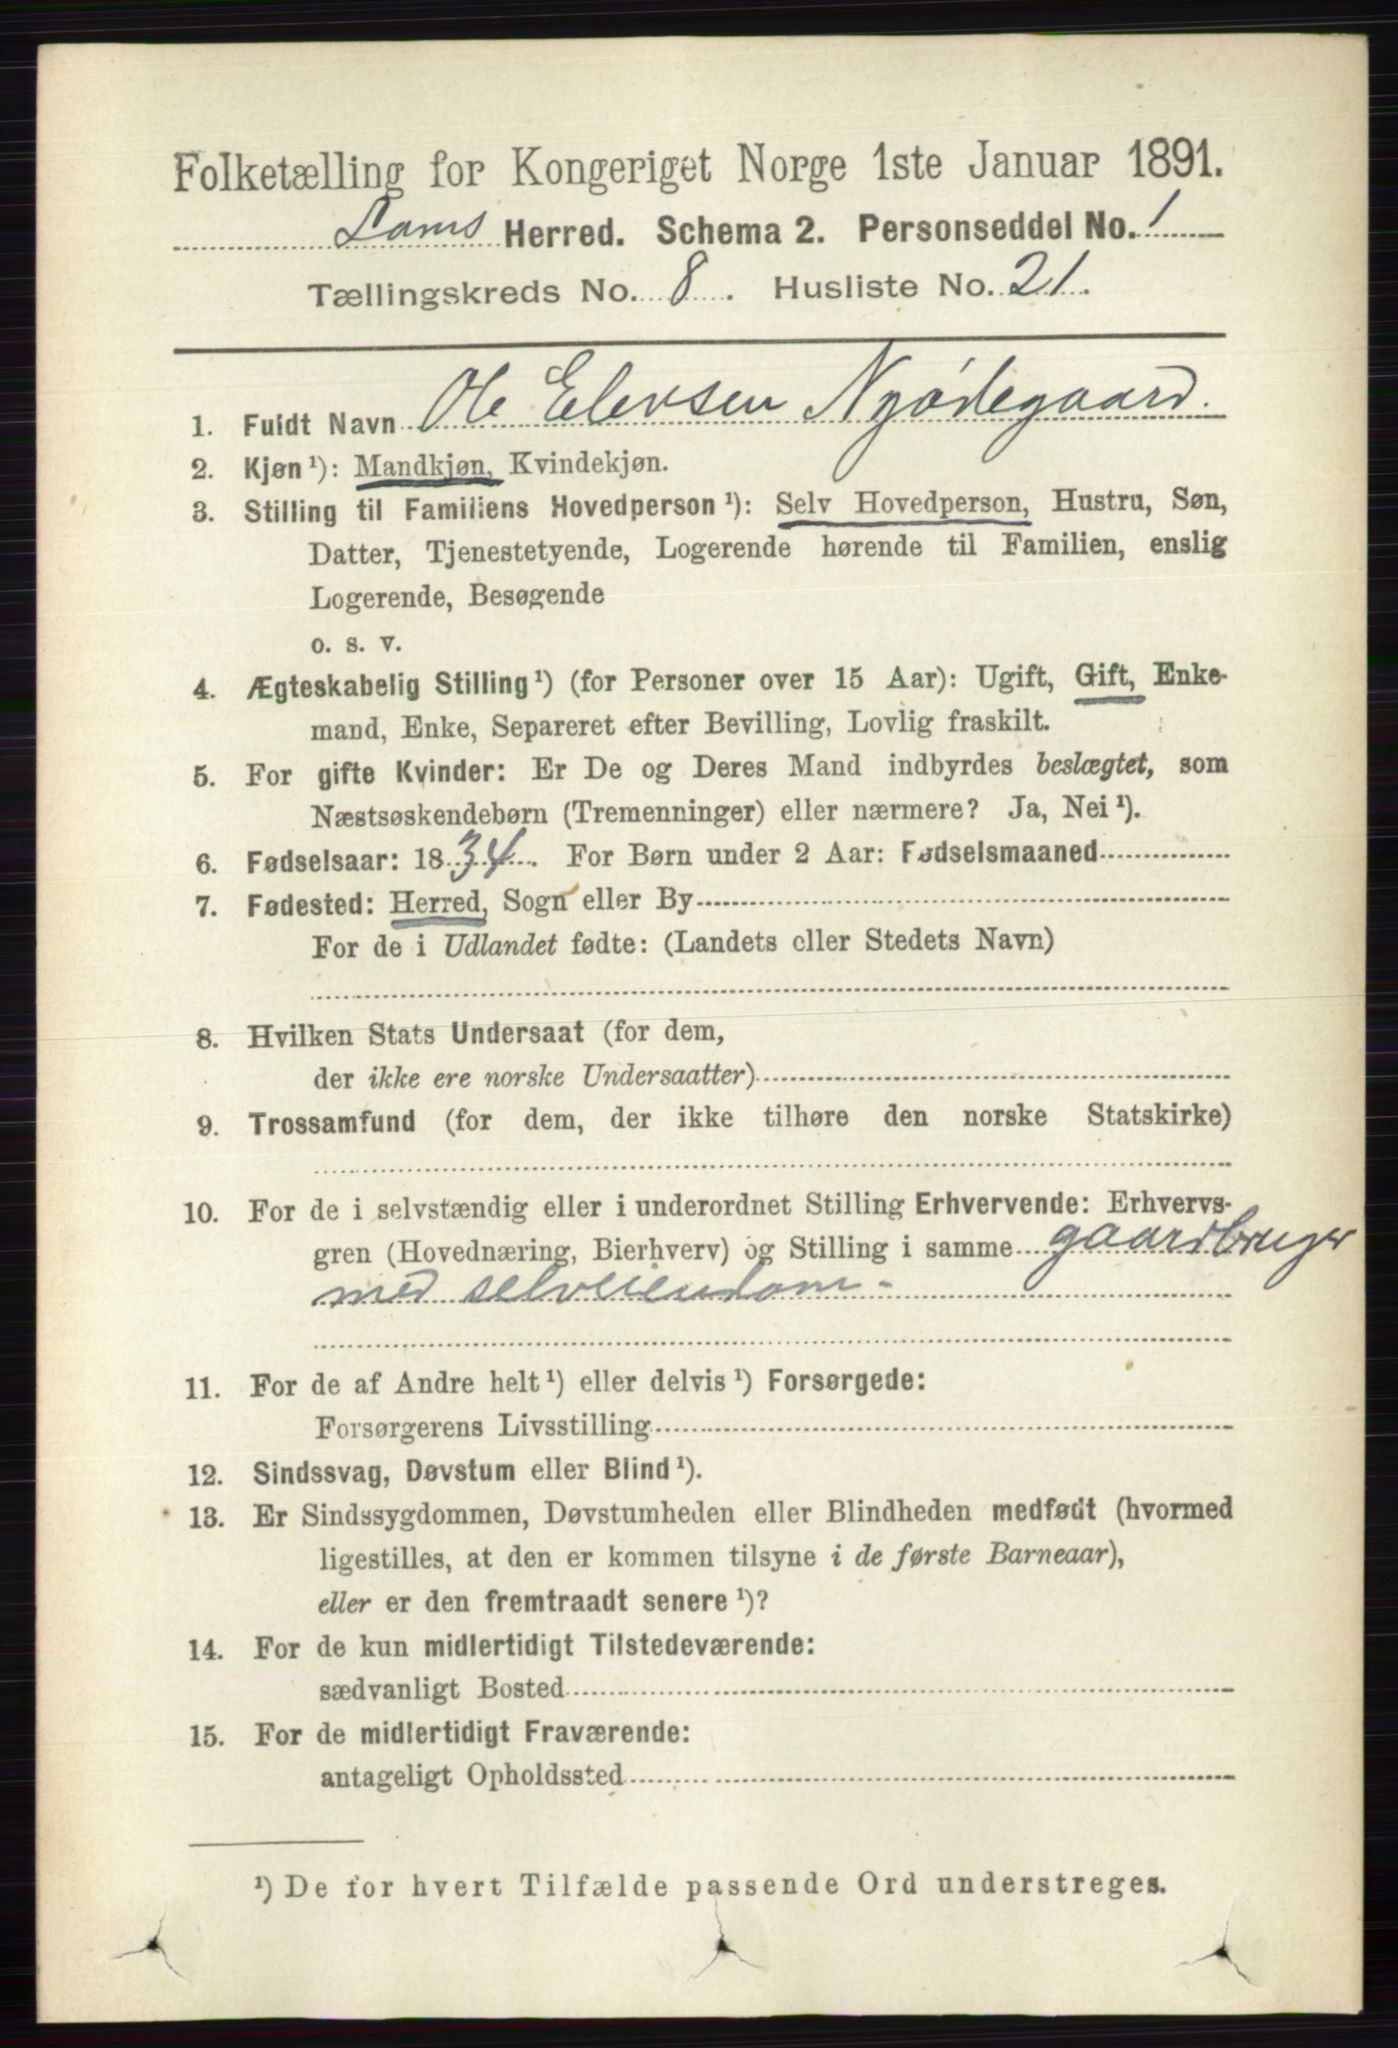 Folketælling for Kongeriget Norge 1ste Januar 1891.
Loms Herred. Schema 2. Personseddel No. 1
Tællingskreds No. 8. Husliste No. 21.
1. Fuldt Navn Ole Elevsen Nyødegaard.
2. Kjøn ¹): Mandkjøn, Kvindekjøn.
3. Stilling til Familiens Hovedperson ¹): Selv Hovedperson, Hustru, Søn,
Datter, Tjenestetyende, Logerende hørende til Familien, enslig
Logerende, Besøgende
o. s. v.
4. Ægteskabelig Stilling ¹) (for Personer over 15 Aar): Ugift, Gift, Enke-
mand, Enke, Separeret efter Bevilling, Lovlig fraskilt.
5. For gifte Kvinder: Er De og Deres Mand indbyrdes beslægtet, som
Næstsøskendebørn (Tremenninger) eller nærmere? Ja, Nei ¹).
6. Fødselsaar: 1834. For Børn under 2 Aar: Fødselsmaaned
7. Fødested: Herred, Sogn eller By
For de i Udlandet fødte: (Landets eller Stedets Navn)
8. Hvilken Stats Undersaat (for dem,
der ikke ere norske Undersaatter)
9. Trossamfund (for dem, der ikke tilhøre den norske Statskirke)
10. For de i selvstændig eller i underordnet Stilling Erhvervende: Erhvervs-
gren (Hovednæring, Bierhverv) og Stilling i samme gaardbruger
med selveiendom -
11. For de af Andre helt ¹) eller delvis ¹) Forsørgede:
Forsørgerens Livsstilling
12. Sindssvag, Døvstum eller Blind ¹).
13. Er Sindssygdommen, Døvstumheden eller Blindheden medfødt (hvormed
ligestilles, at den er kommen tilsyne i de første Barneaar),
eller er den fremtraadt senere ¹)?
14. For de kun midlertidigt Tilstedeværende:
sædvanligt Bosted
15. For de midlertidigt Fraværende:
antageligt Opholdssted
¹) De for hvert Tilfælde passende Ord understreges.